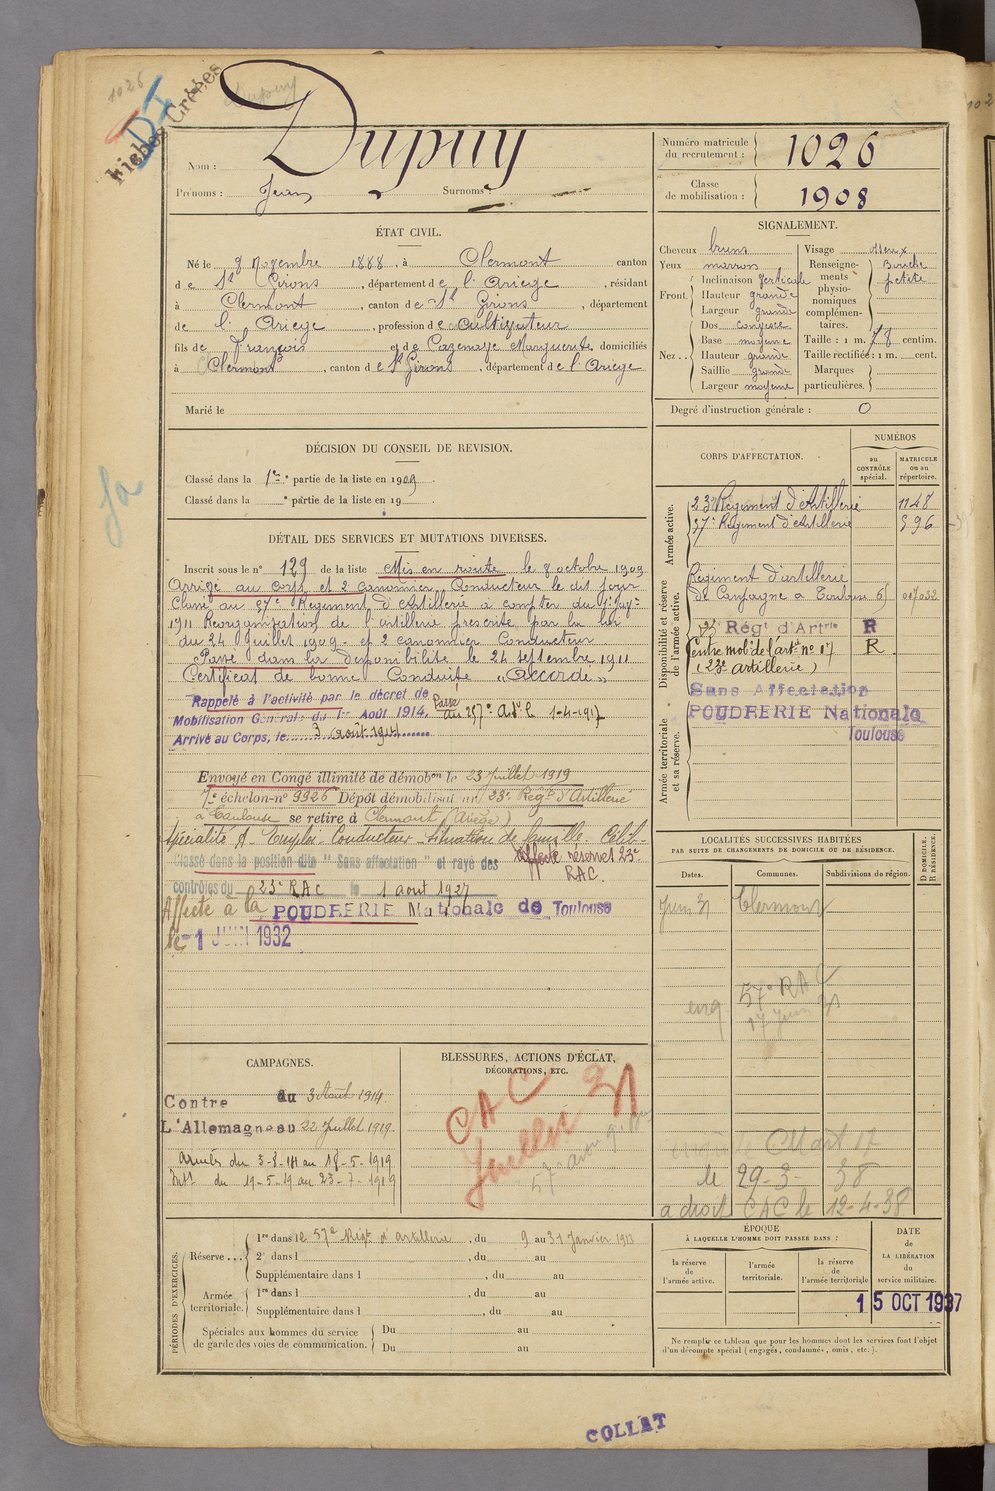 1026
Fiches Créées
Dupuy
Nom : Dupuy
Prénoms : Jean Surnoms :
Numéro matricule du recrutement : 1026
Classe de mobilisation : 1908
ÉTAT CIVIL.
Né le 9 Novembre 1888, à Clermont canton
de St Girons, département de l'Ariège, résidant
à Clermont, canton de St Girons, département
de l'Ariège, profession de cultivateur
fils de François et de Cazenave Marguerite domiciliés
à Clermont, canton de St Girons, département de l'Ariège
Marié le
SIGNALEMENT.
Cheveux bruns
Yeux marron
Front. Inclinaison Verticale
Hauteur grande
Largeur grande
Nez... Dos convexe
Base moyenne
Hauteur grande
Saillie grande
Largeur moyenne
Visage osseux
Renseignements physionomiques complémentaires. Bouche petite
Taille : 1 m. 78 centim.
Taille rectifiée : 1 m. cent.
Marques particulières.
Degré d'instruction générale : 0
DÉCISION DU CONSEIL DE REVISION.
Classé dans la 1re partie de la liste en 1909.
Classé dans la e partie de la liste en 19
DÉTAIL DES SERVICES ET MUTATIONS DIVERSES.
Inscrit sous le n° 129 de la liste Mis en route le 8 octobre 1909
Arrivé au corps et 2 canonnier Conducteur le dit jour
Classé au 57e Régiment d'Artillerie à compter du 1er
1911 Réorganisation de l'artillerie prescrite par la loi
du 24 Juillet 1909 - et 2 canonnier Conducteur
Passé dans la disponibilité le 24 septembre 1911
Certificat de bonne Conduite "Accordé"
Rappelé à l'activité par le décret de
Mobilisation Générale du 1er Août 1914. Passé au 257e 1-4-1917
Arrivé au Corps, le 3 août 1914
Envoyé en Congé illimité de démobon le 23 Juillet 1919
7e échelon-n° 9926 Dépôt démobilisat ur 23e Régt d'Artillerie
à Toulouse se retire à Clermont (Ariège)
Spécialité A. Emploi Conducteur Situation de famille Célib.
Classé dans la position dite "Sans affectation" et rayé des
Affecté réserve 23e RAC.
contrôles du 23e RAC le 1 août 1927
Affecté à la POUDRERIE Nationale de Toulouse
le -1 JUIN 1932
CORPS D'AFFECTATION.
NUMÉROS
au CONTRÔLE spécial.
MATRICULE ou au répertoire.
Armée active.
23e Régiment d'Artillerie 1148
57e Régiment d'Artillerie 396
Disponibilité et réserve de l'armée active.
Régiment d'artillerie
de Campagne à Toulouse
23e Régt d'Artrie R
Centre mobr de l'artie n° 17 R.
(23e artillerie)
Sans Affectation
POUDRERIE Nationale
Toulouse
Armée territoriale et sa réserve.
LOCALITÉS SUCCESSIVES HABITÉES
PAR SUITE DE CHANGEMENTS DE DOMICILE OU DE RÉSIDENCE.
Dates. Communes. Subdivisions de région. D DOMICILE, R RÉSIDENCE.
Juin 31 Clermont
57e RAC
17 Juin 31
le 29-3-38
a droit CAC le 12-4-38
CAMPAGNES.
Contre du 3 Août 1914
L'Allemagne au 22 Juillet 1919
Armées du 3-8-14 au 18-5-1919
Intr du 19-5-19 au 23-7-1919
BLESSURES, ACTIONS D'ÉCLAT,
DÉCORATIONS, ETC.
CAC
Juillet 31
PÉRIODES D'EXERCICES.
Réserve... 1re dans le 57e Régt d'artillerie, du 9 au 31 Janvier 1913
2e dans l , du au
Supplémentaire dans l , du au
Armée territoriale. 1re dans l , du au
Supplémentaire dans l , du au
Spéciales aux hommes du service de garde des voies de communication. Du au
Du au
ÉPOQUE
À LAQUELLE L'HOMME DOIT PASSER DANS :
la réserve de l'armée active.
l'armée territoriale.
la réserve de l'armée territoriale
DATE de LA LIBÉRATION du service militaire.
15 OCT 1937
Ne remplir ce tableau que pour les hommes dont les services font l'objet
d'un décompte spécial (engagés, condamnés, omis, etc.).
COLLAT